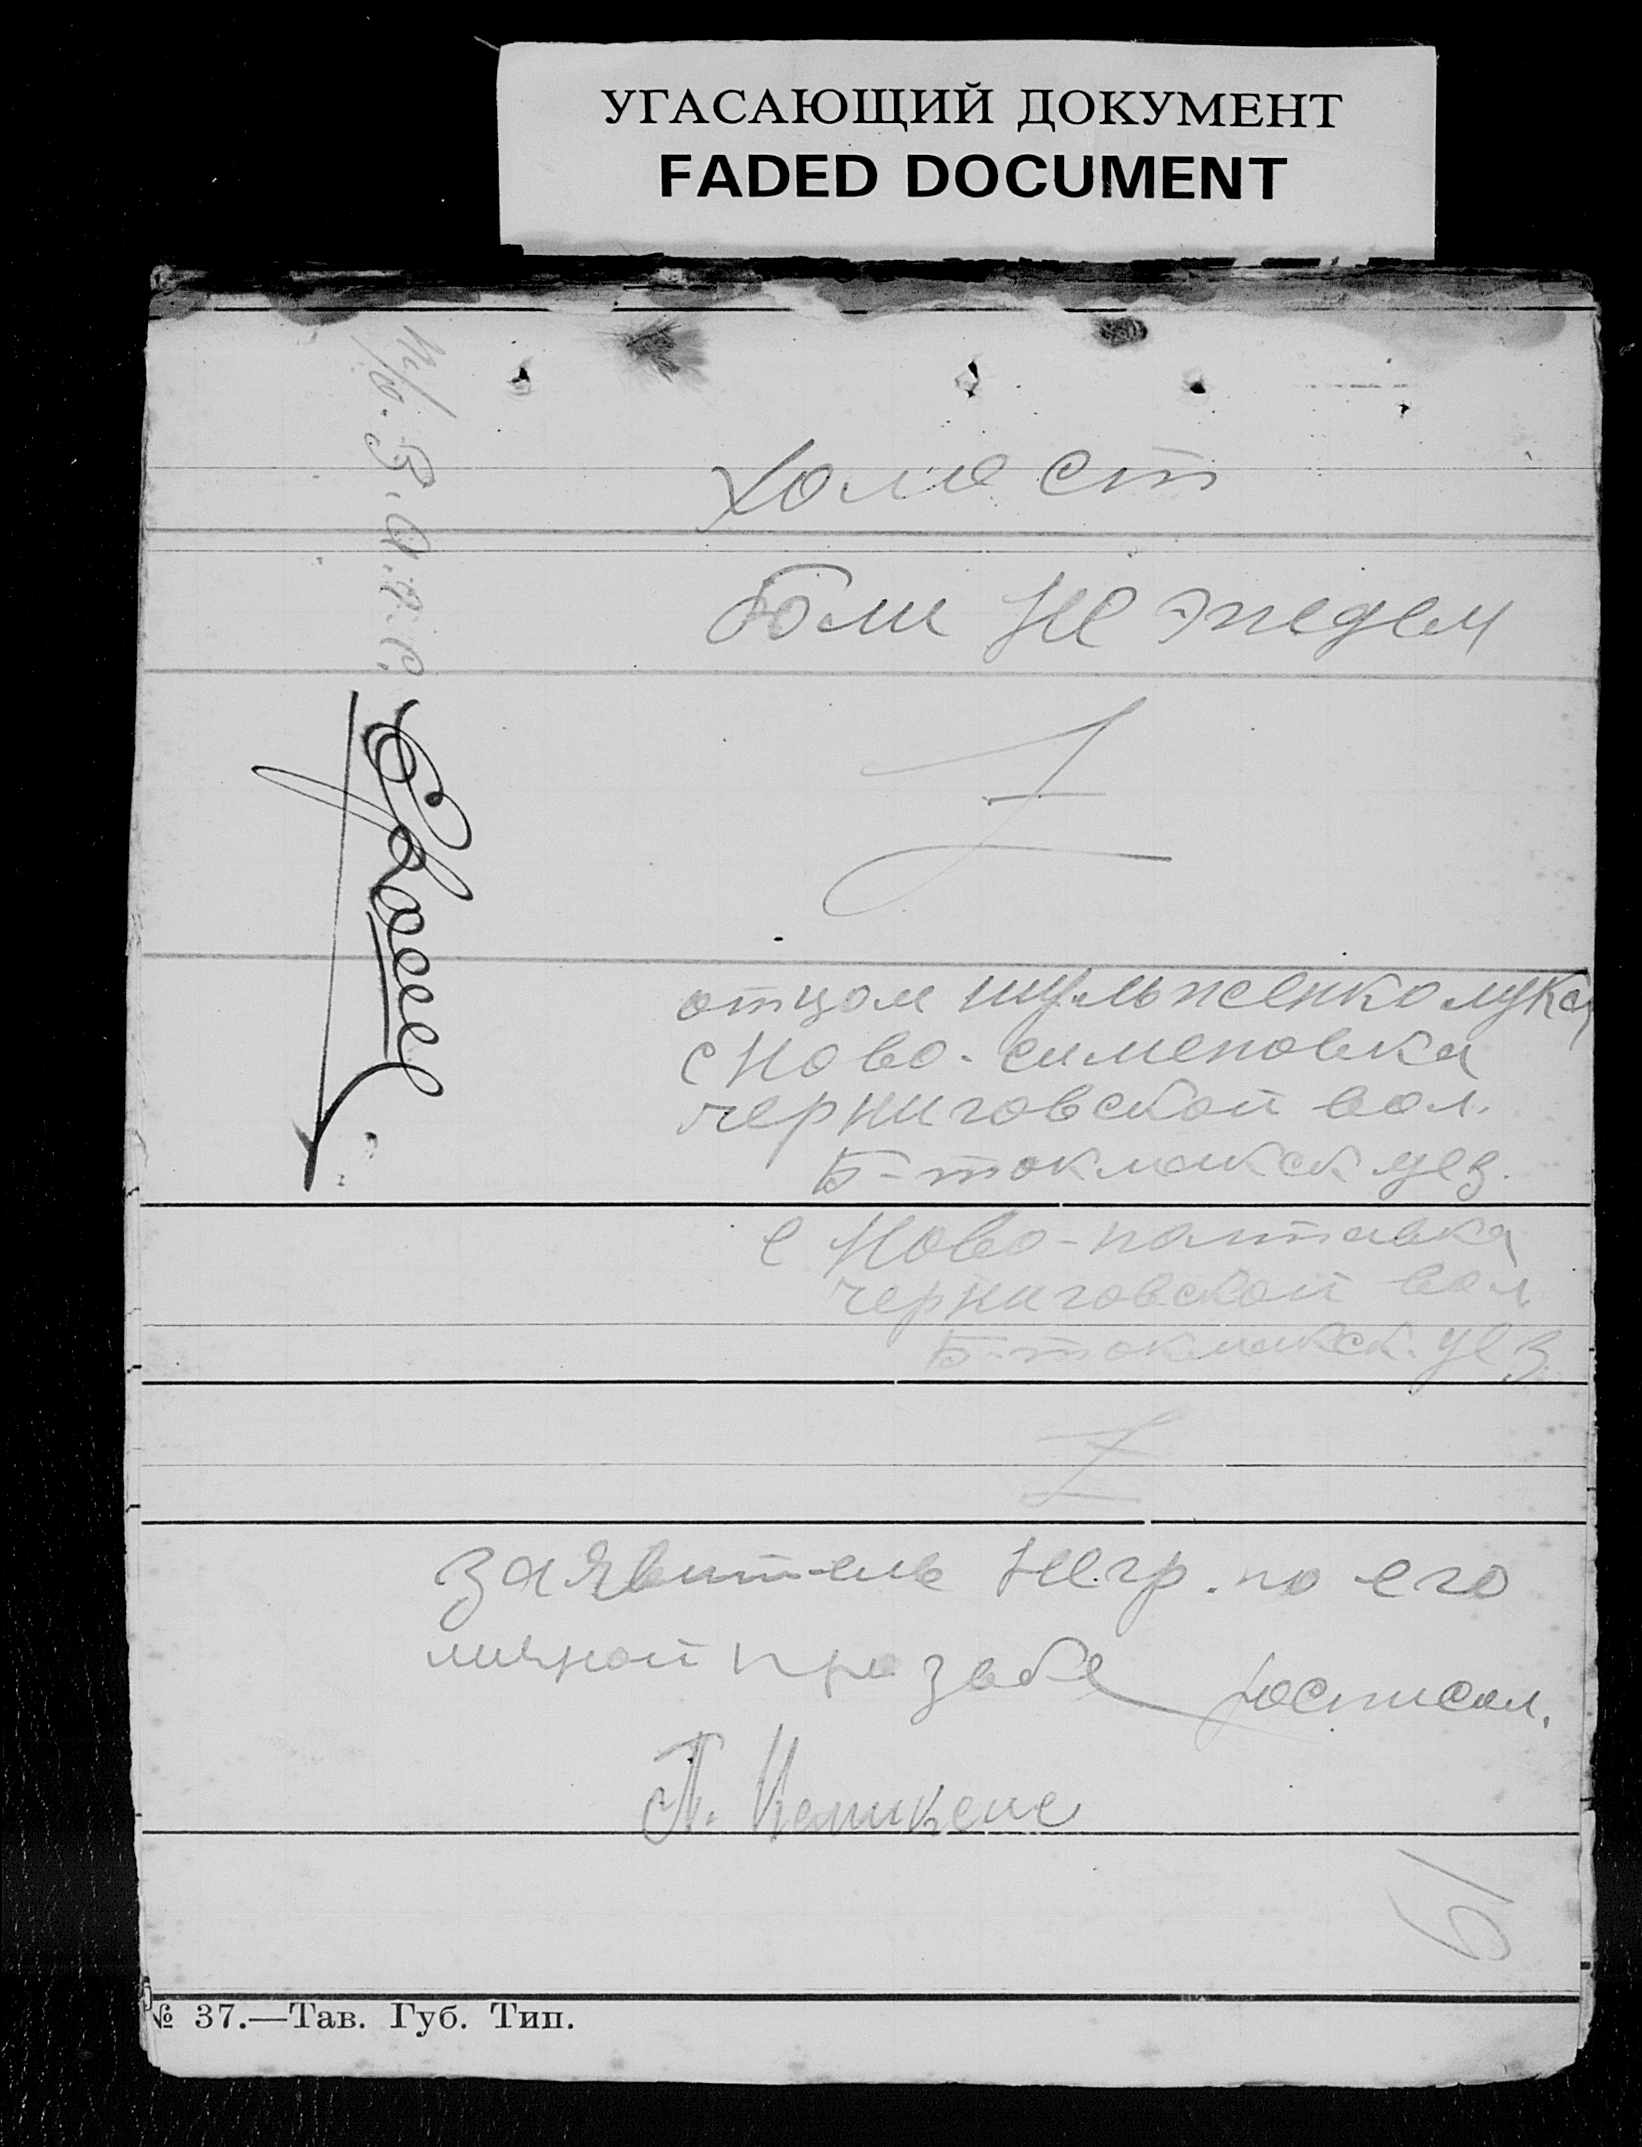 УГАСАЮЩИЙ ДОКУМЕНТ
FADED DOCUMENT
холост
отцом шульженко лука
с Ново-сименовка
черниговской вол.
Б-токмакск уез.
с Ново-полтавка
черниговской вол
Б-токмакск. уез.
заявитель негр. по его
личной прозьбе
П.
19
№ 37.—Тав. Губ. Тип.